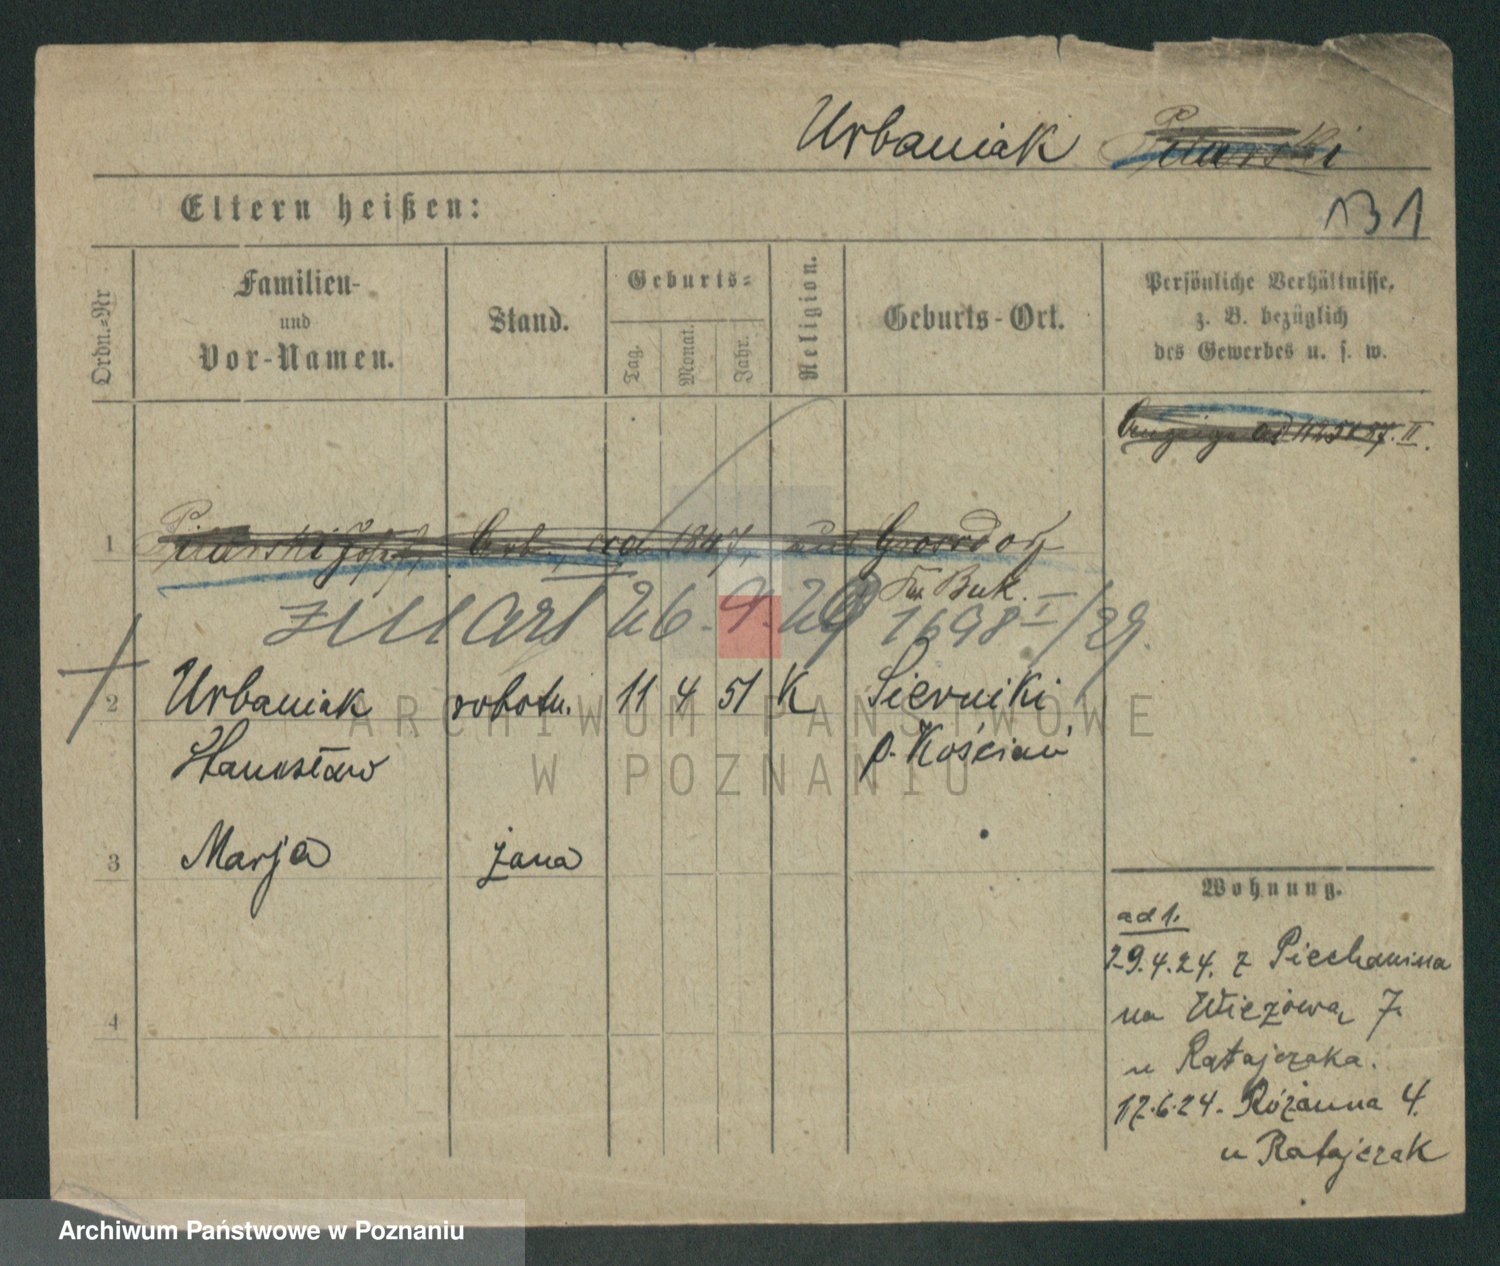 Urbaniak
131
Eltern heißen:
Ordn.=Nr
Familien-
und
Vor-Namen.
Stand.
Geburts=
Tag.
Monat.
Jahr.
Religion.
Geburts-Ort.
Persönliche Verhältnisse,
z. B. bezüglich
des Gewerbes u. s. w.
II.
1
1847,
Buk.
zmarł 26.4.29 1698 I/29.
2 Urbaniak robotn. 11 4 51 K Sierniki
Stanisław p. Kościan
3 Marja żona
4
Wohnung.
ad 1.
29.4.24. z Piechanina
na Wieżową 7.
u Ratajczaka.
17.6.24. Różanna 4.
u Ratajczak
ARCHIWUM PAŃSTWOWE
W POZNANIU
Archiwum Państwowe w Poznaniu